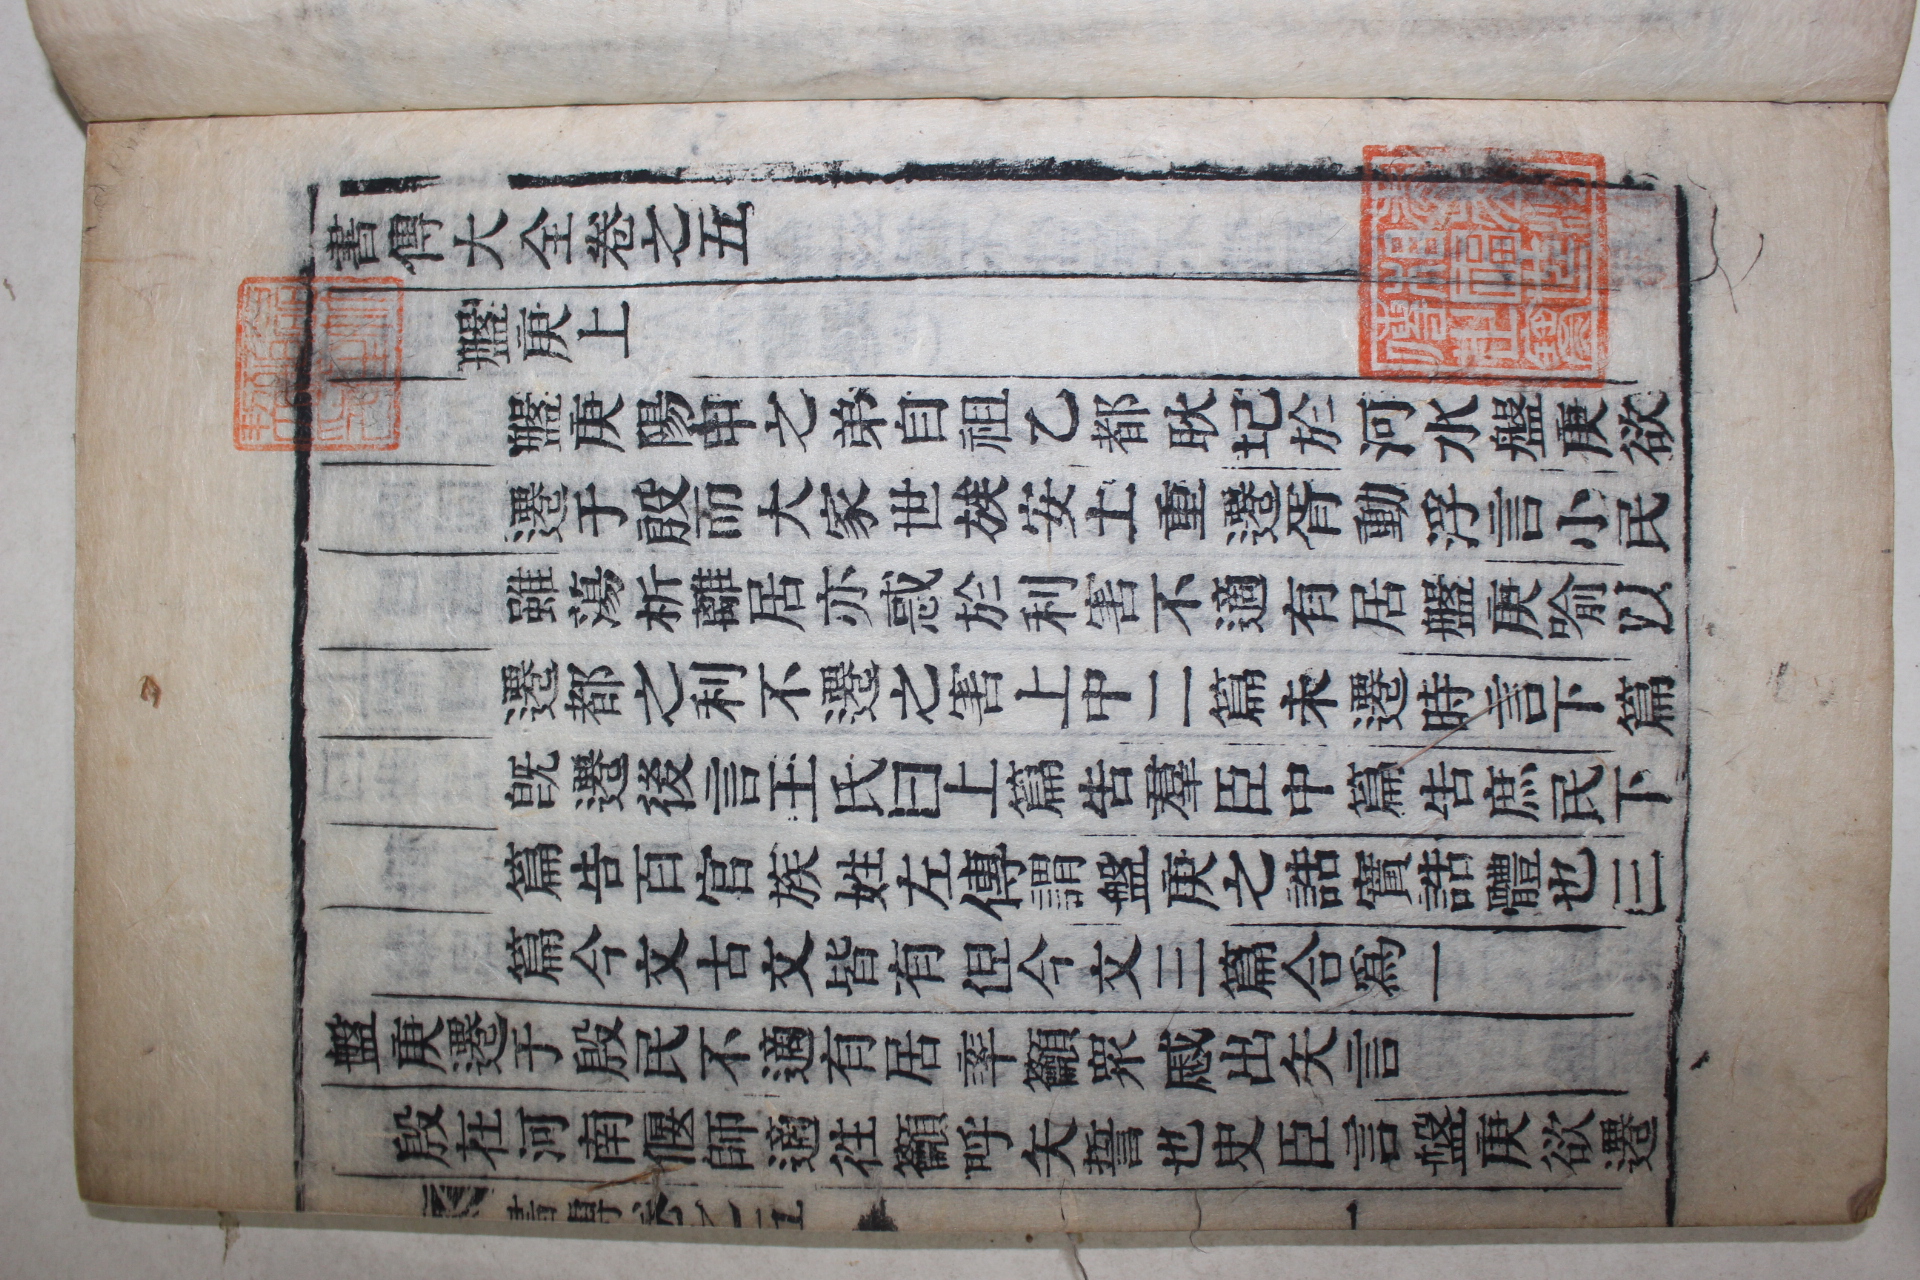 書傳大全卷之五
盤庚上
盤庚陽甲之弟自祖乙都耿圮於河水盤庚欲
遷于殷而大家世族安土重遷胥動浮言小民
雖蕩析離居亦惑於利害不適有居盤庚喻以
遷都之利不遷之害上中二篇未遷時言下篇
旣遷後言王氏曰上篇告羣臣中篇告庶民下
篇告百官族姓左傳謂盤庚之誥實誥體也三
篇今文古文皆有但今文三篇合爲一
盤庚遷于殷民不適有居率籲衆慼出矢言
殷在河南偃師適往籲呼矢誓也史臣言盤庚欲遷